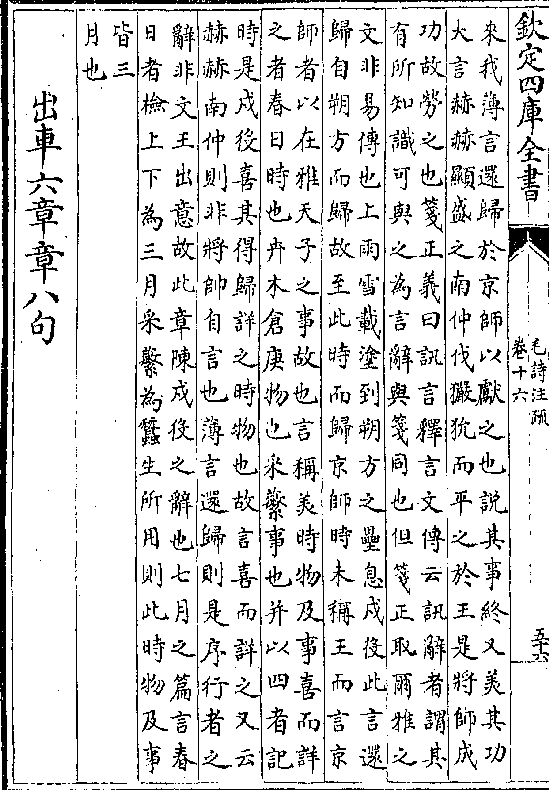 欽定四庫全書
毛詩注疏
卷十六
五十六
來我薄言還歸於京師以獻之也説其事終又美其功
大言赫赫顯盛之南仲伐玁狁而平之於王是將帥成
功故勞之也箋正義曰訊言釋言文傳云訊辭者謂其
有所知識可與之為言辭與箋同也但箋正取爾雅之
文非易傳也上雨雪載塗到朔方之壘息戍役此言還
歸自朔方而歸故至此時而歸京師時未稱王而言京
師者以在雅天子之事故也言稱美時物及事喜而詳
之者春日時也卉木倉庚物也采蘩事也并以四者記
時是戍役喜其得歸詳之時物也故言喜而詳之又云
赫赫南仲則非將帥自言也薄言還歸則是序行者之
辭非文王出意故此章陳戍役之辭也七月之篇言春
日者檢上下為三月采蘩為蠶生所用則此時物及事
皆三
月也
出車六章章八句